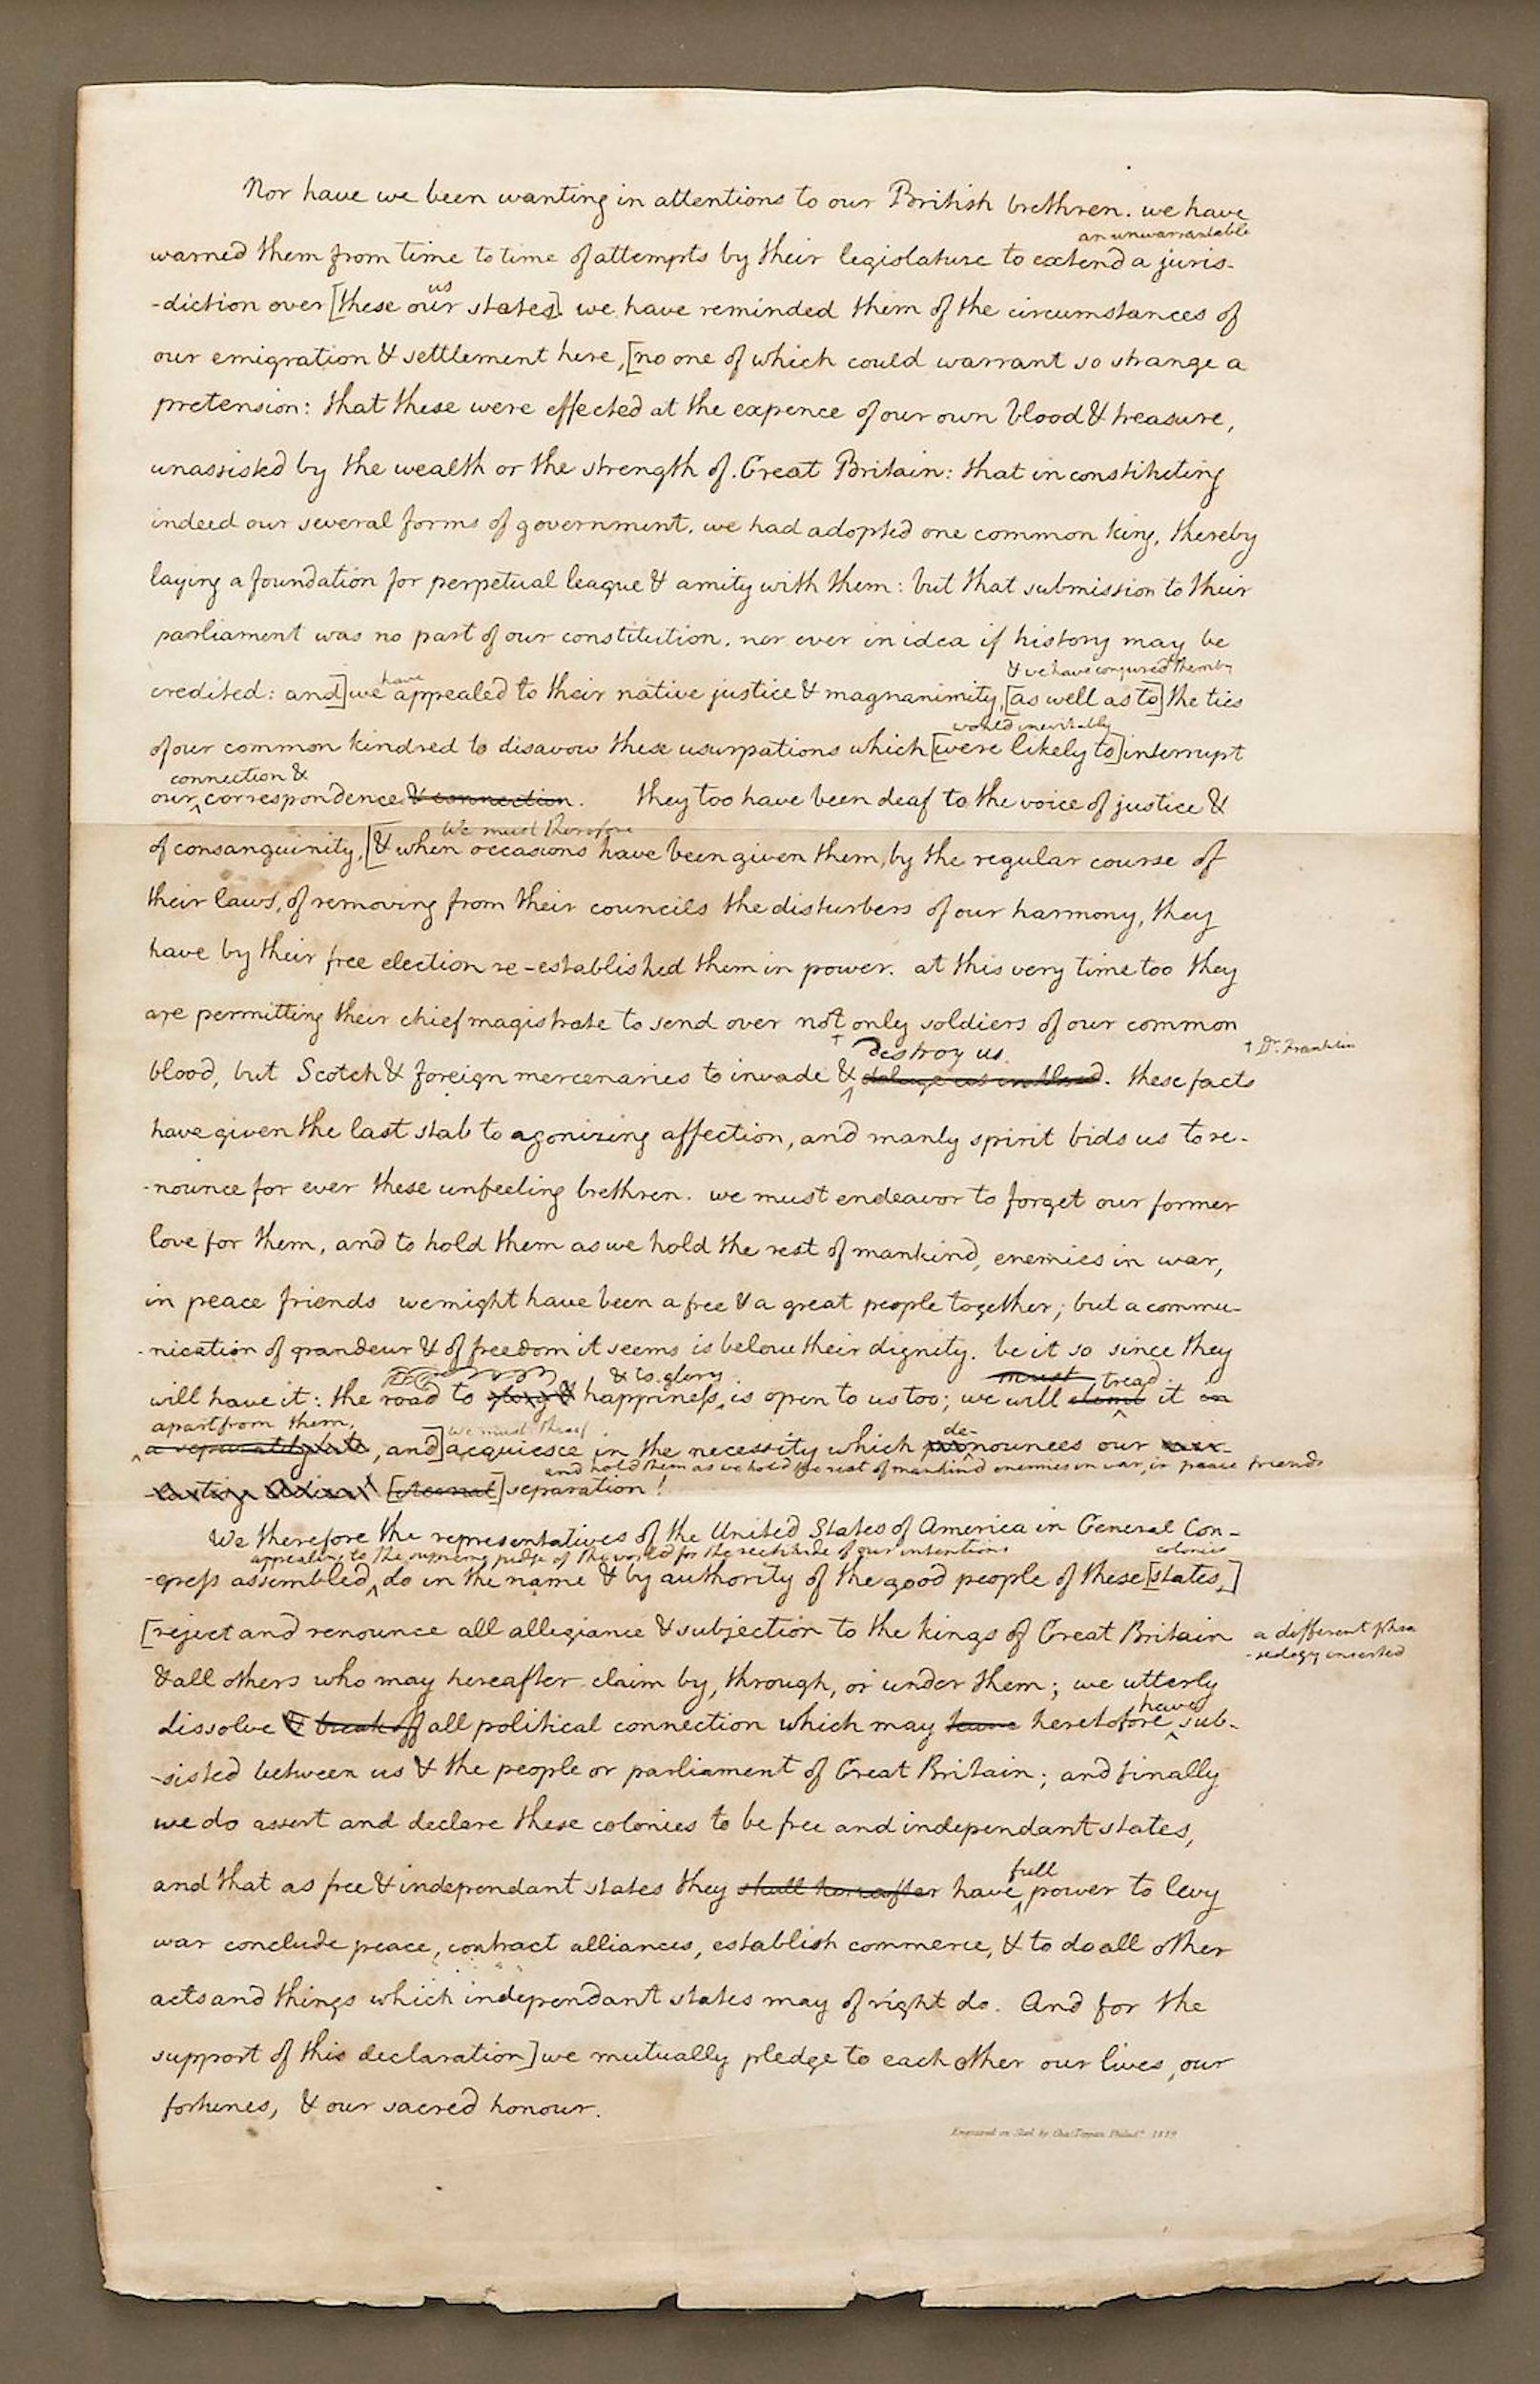 Nor have we been wanting in attentions to our British brethren. we have
an unwarrantable
warned them from time to time of attempts by their legislature to extend a juris-
us
-diction over [these our states]. we have reminded them of the circumstances of
our emigration & settlement here, [no one of which could warrant so strange a
pretension: that these were effected at the expence of our own blood & treasure,
unassisted by the wealth or the strength of Great Britain: that in constituting
indeed our several forms of government, we had adopted one common king, thereby
laying a foundation for perpetual league & amity with them: but that submission to their
parliament was no part of our constitution, nor ever in idea if history may be
have & we have conjured them by
credited: and] we appealed to their native justice & magnanimity, [as well as to] the ties
would inevitably
of our common kindred to disavow these usurpations which [were likely to] interrupt
connection &
our correspondence & connection. they too have been deaf to the voice of justice &
We must therefore
of consanguinity, [& when occasions have been given them, by the regular course of
their laws, of removing from their councils the disturbers of our harmony, they
have by their free election re-established them in power. at this very time too they
are permitting their chief magistrate to send over not only soldiers of our common
destroy us † Dr. Franklin
blood, but Scotch & foreign mercenaries to invade & deluge us in blood. these facts
have given the last stab to agonizing affection, and manly spirit bids us to re-
-nounce for ever these unfeeling brethren. we must endeavor to forget our former
love for them, and to hold them as we hold the rest of mankind, enemies in war,
in peace friends we might have been a free & a great people together; but a commu-
-nication of grandeur & of freedom it seems is below their dignity. be it so since they
& to glory must tread
will have it: the road to glory & happiness is open to us too; we will climb it in
apart from them.
a separately state, and] acquiesce in the necessity which pronounces our ever-
we must theref. de-
and hold them as we hold the rest of mankind enemies in war, in peace friends
-lasting Adieu! [eternal] separation!
We therefore the representatives of the United States of America in General Con-
appealing to the supreme judge of the world for the rectitude of our intentions colonies
-gress assembled, do in the name & by authority of the good people of these [states,]
[reject and renounce all allegiance & subjection to the kings of Great Britain a different phra
-seology inserted
& all others who may hereafter claim by, through, or under them; we utterly
have
dissolve & break off all political connection which may have heretofore sub-
-sisted between us & the people or parliament of Great Britain; and finally
we do assert and declare these colonies to be free and independant states,
full
and that as free & independant states they shall hereafter have power to levy
war conclude peace, contract alliances, establish commerce, & to do all other
acts and things which independant states may of right do. And for the
support of this declaration] we mutually pledge to each other our lives, our
fortunes, & our sacred honour.
Engraved on Steel by Cha. Toppan Philada. 1829